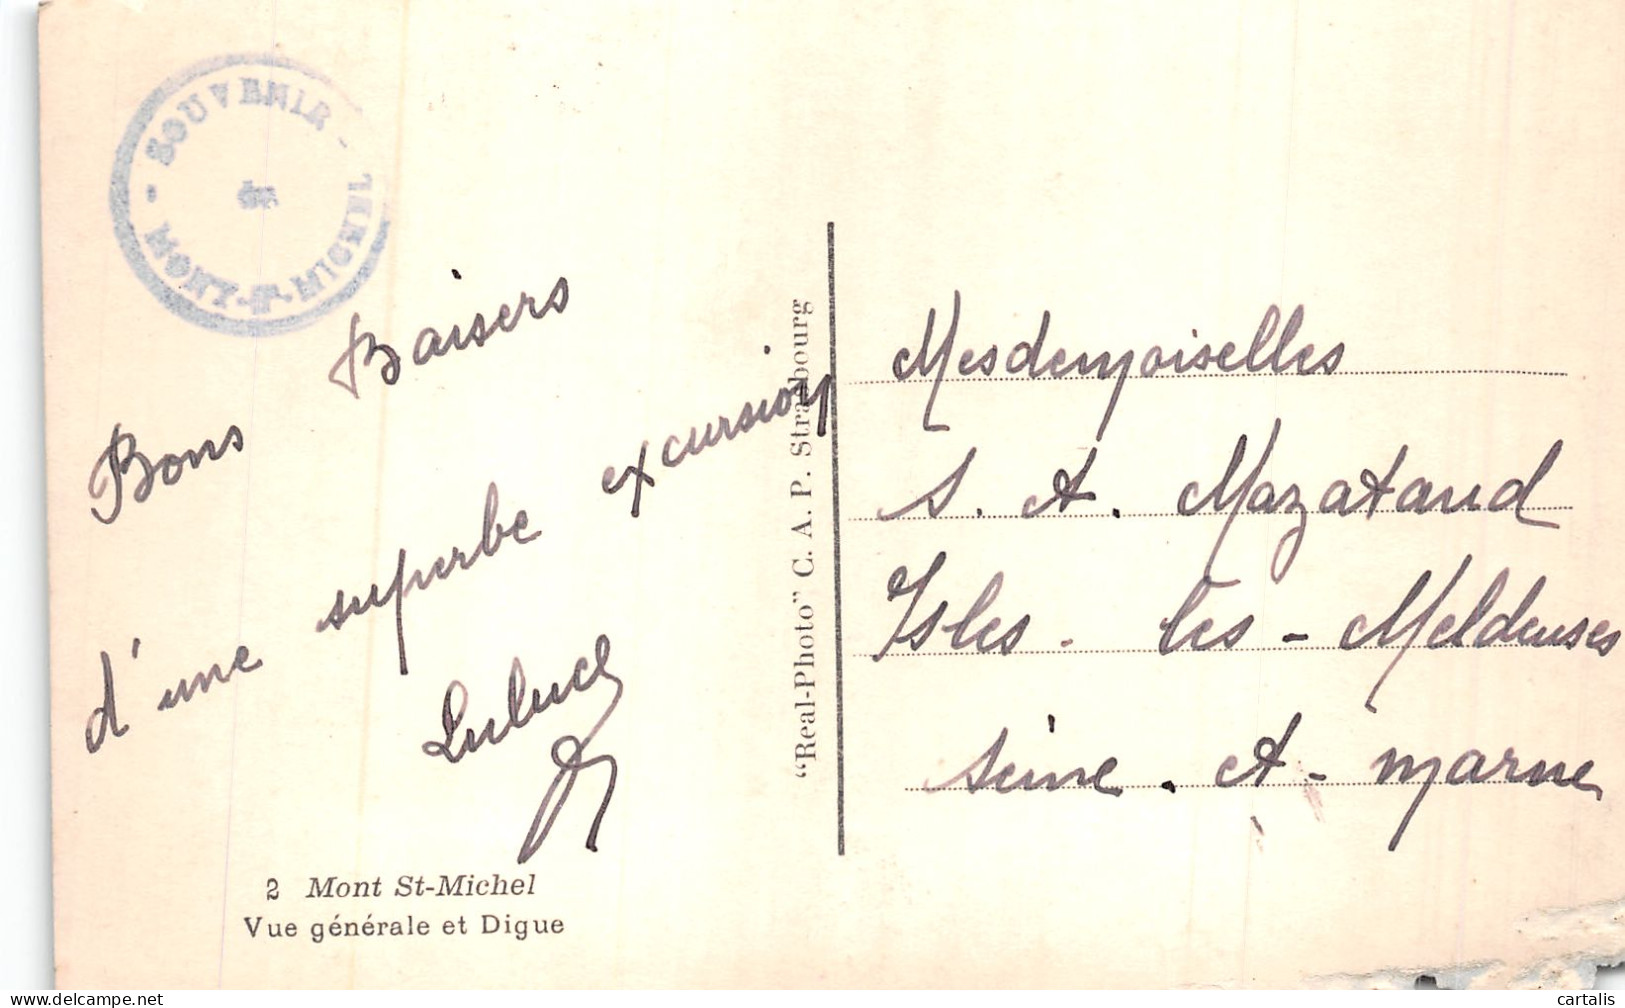 - SOUVENIR -
du
MONT-St-MICHEL
Bons Baisers
d'une superbe excursion
2 Mont St-Michel
Vue générale et Digue
"Real-Photo" C. A. P. Strasbourg
Mesdemoiselles
S. et. Mazataud
Isles. les - Meldeuses
Seine. et - Marne
delcampe.net
cartalis